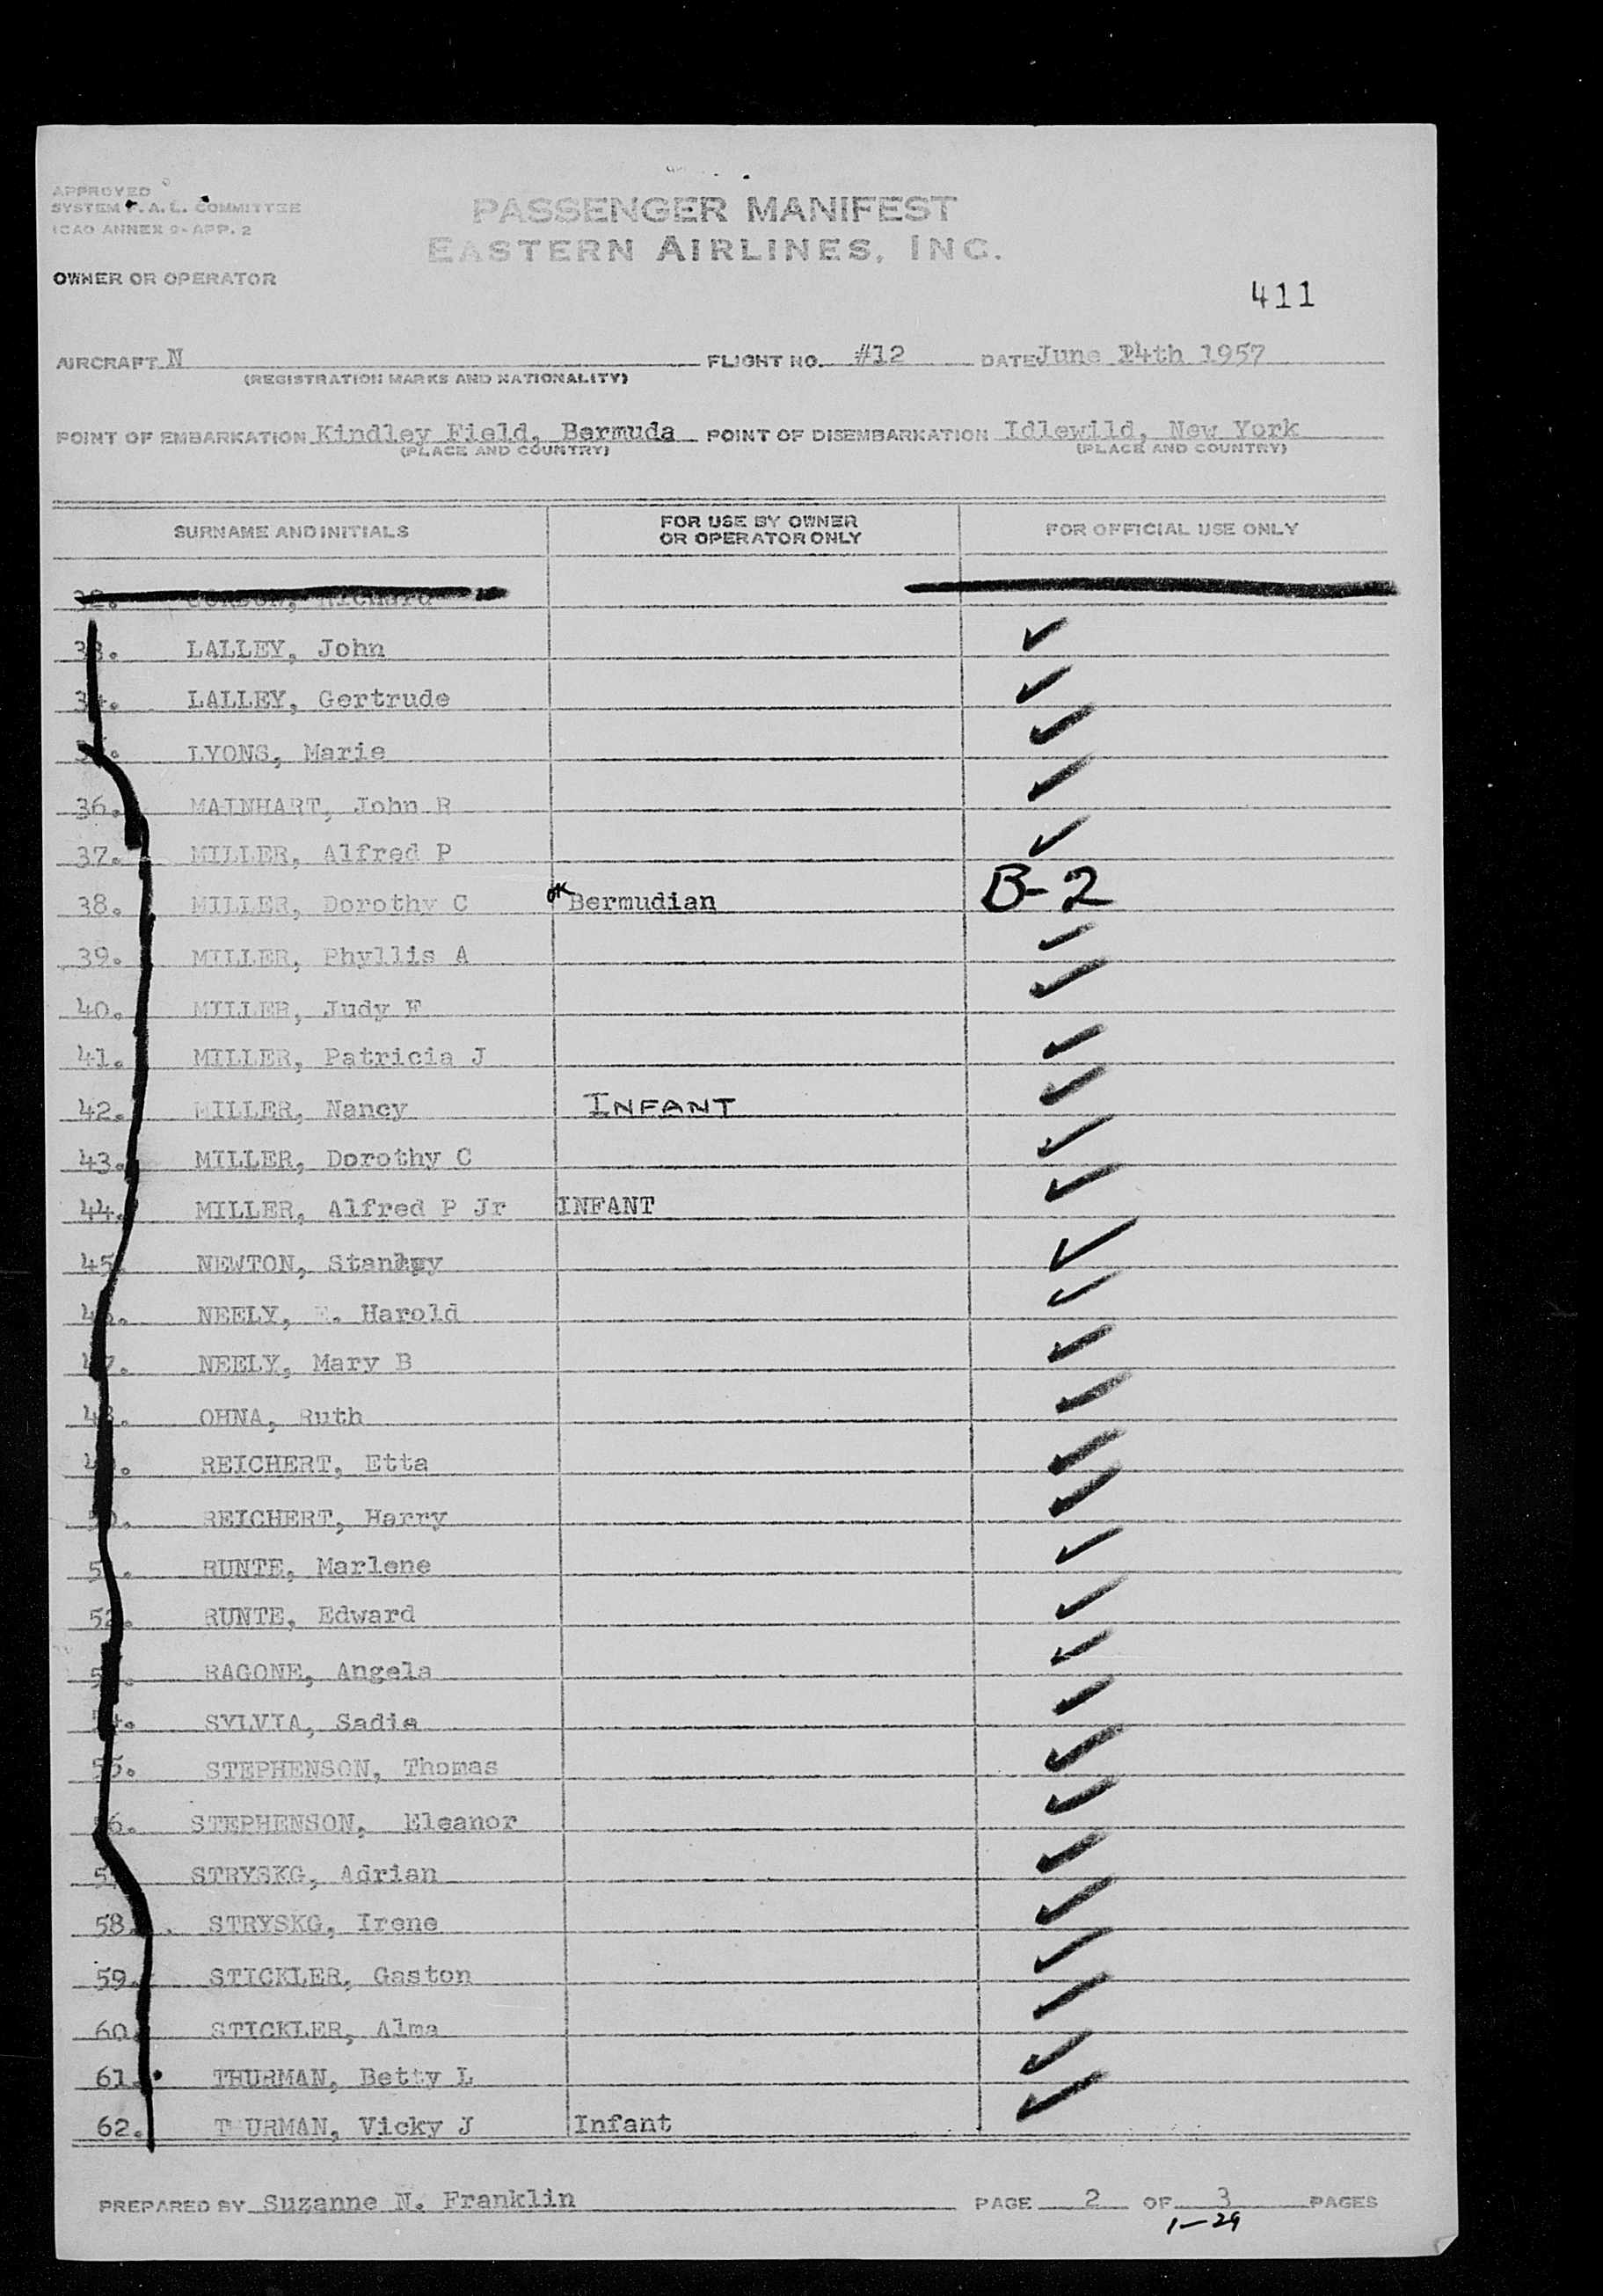 APPROVED
SYSTEM F. A. L. COMMITTEE
ICAO ANNEX 9- APP. 2
PASSENGER MANIFEST
EASTERN AIRLINES, INC.
OWNER OR OPERATOR
411
AIRCRAFT N FLIGHT NO. #12 DATE June 14th 1957
(REGISTRATION MARKS AND NATIONALITY)
POINT OF EMBARKATION Kindley Field, Bermuda POINT OF DISEMBARKATION Idlewild, New York
(PLACE AND COUNTRY) (PLACE AND COUNTRY)
SURNAME AND INITIALS FOR USE BY OWNER OR OPERATOR ONLY FOR OFFICIAL USE ONLY
32. Richard
33. LALLEY, John ✓
34. LALLEY, Gertrude ✓
35. LYONS, Marie ✓
36. MAINHART, John R ✓
37. MILLER, Alfred P ✓
38. MILLER, Dorothy C OK Bermudian B-2
39. MILLER, Phyllis A ✓
40. MILLER, Judy F ✓
41. MILLER, Patricia J ✓
42. MILLER, Nancy INFANT ✓
43. MILLER, Dorothy C ✓
44. MILLER, Alfred P Jr INFANT ✓
45. NEWTON, Stanley ✓
46. NEELY, E. Harold ✓
47. NEELY, Mary B ✓
48. OHNA, Ruth ✓
49. REICHERT, Etta ✓
50. REICHERT, Harry ✓
51. RUNTE, Marlene ✓
52. RUNTE, Edward ✓
53. RAGONE, Angela ✓
54. SYLVIA, Sadie ✓
55. STEPHENSON, Thomas ✓
56. STEPHENSON, Eleanor ✓
57. STRYSKG, Adrian ✓
58. STRYSKG, Irene ✓
59. STICKLER, Gaston ✓
60. STICKLER, Alma ✓
61. THURMAN, Betty L ✓
62. T URMAN, Vicky J Infant ✓
PREPARED BY Suzanne N. Franklin PAGE 2 OF 3 PAGES
1-29